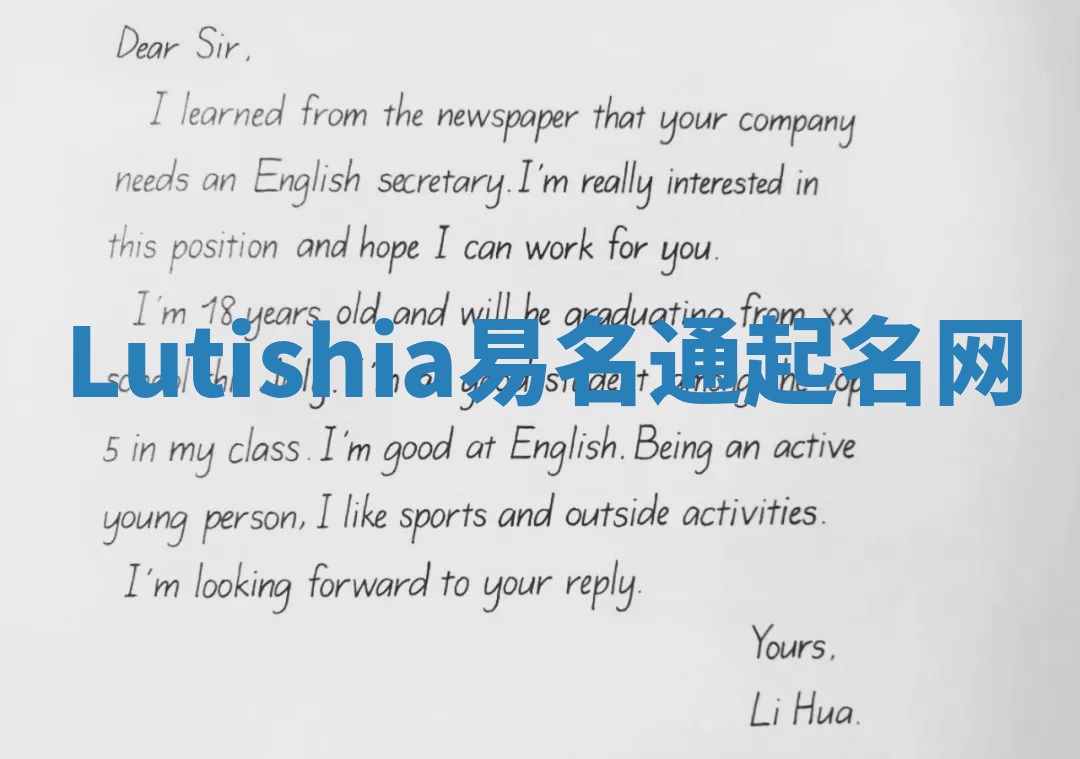 Dear Sir,
I learned from the newspaper that your company
needs an English secretary. I'm really interested in
this position and hope I can work for you.
I'm 18 years old and will be graduating from xx
Lutishia易名通起名网
school this July. I'm a good student, among the top
5 in my class. I'm good at English. Being an active
young person, I like sports and outside activities.
I'm looking forward to your reply.
Yours,
Li Hua.